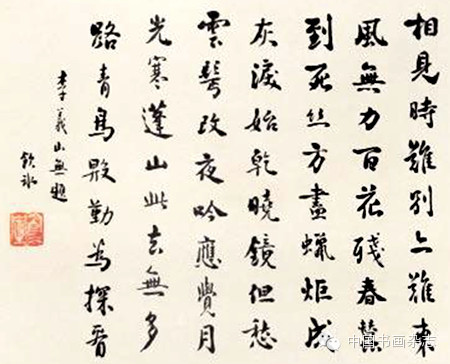 相見時難別亦難東
風無力百花殘春蠶
到死絲方盡蠟炬成
灰淚始乾曉鏡但愁
雲鬢改夜吟應覺月
光寒蓬山此去無多
路青鳥殷勤為探看
李義山無題
飲冰
中国书画杂志